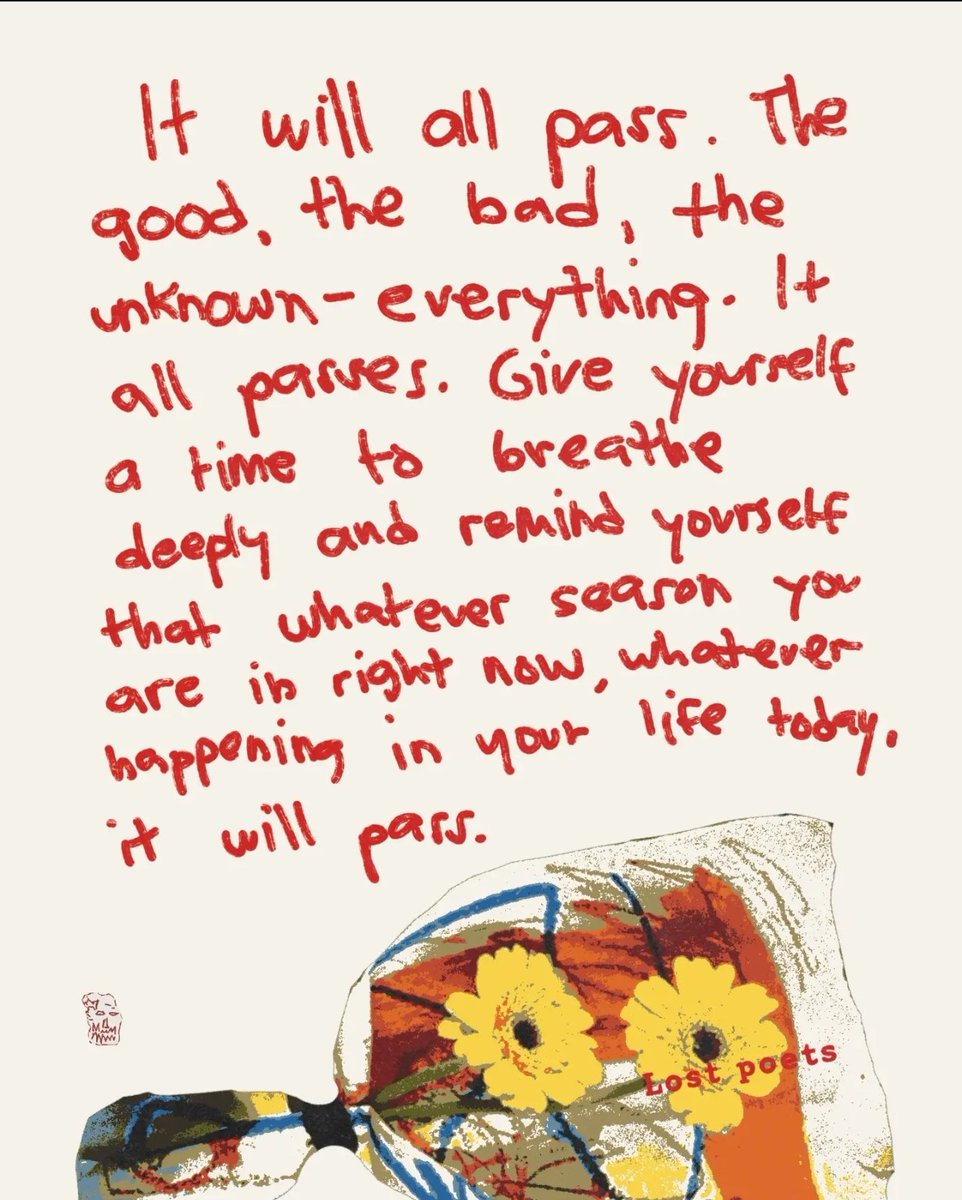 It will all pass. The
good, the bad, the
unknown - everything. It
all passes. Give yourself
a time to breathe
deeply and remind yourself
that whatever season you
are in right now, whatever
happening in your life today,
it will pass.
Lost poets